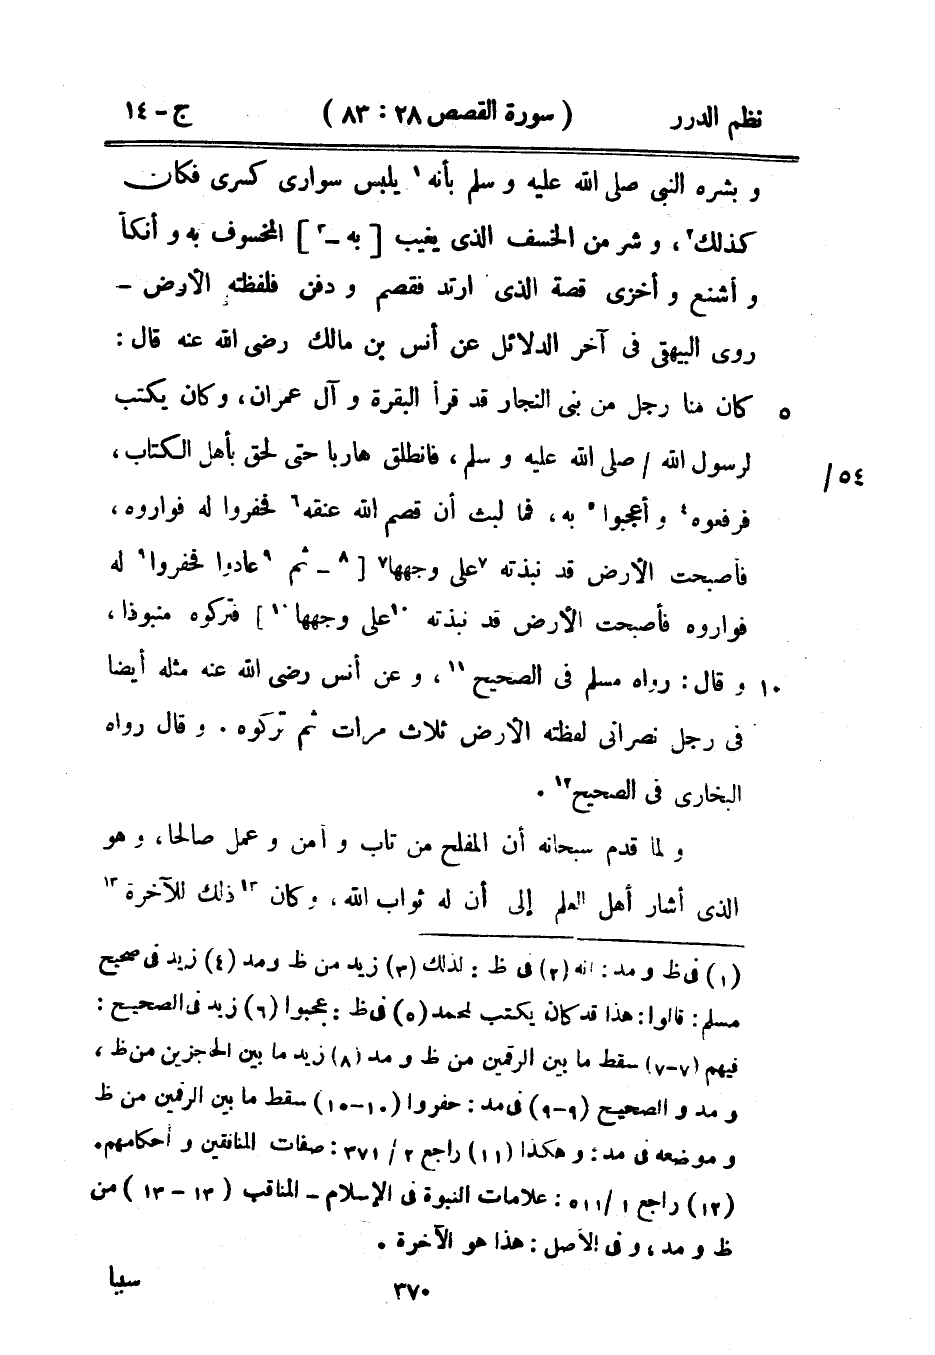 نظم الدرر ( سورة القصص ٢٨ : ٨٣ ) ج - ١٤
و بشره النبى صلى الله عليه و سلم بأنه ١ يلبس سوارى كسرى فكان
كذلك ٢ ، و شر من الخسف الذى يغيب [ به - ٣ ] المخسوف به و أنكأ
و أشنع و أخزى قصة الذى ارتد فقصم و دفن فلفظته الأرض -
روى البيهقى فى آخر الدلائل عن أنس بن مالك رضى الله عنه قال :
٥ كان منا رجل من بنى النجار قد قرأ البقرة و آل عمران ، وكان يكتب
٥٤/ لرسول الله / صلى الله عليه و سلم ، فانطلق هاربا حتى لحق بأهل الكتاب ،
فرفعوه ٤ و أعجبوا ٥ به ، فما لبث أن قصم الله عنقه ٦ فحفروا له فواروه ،
فأصبحت الأرض قد نبذته ٧ على وجهها ٧ [ ٨ - ثم ٩ عادوا فحفروا ٩ له
فواروه فأصبحت الأرض قد نبذته ١٠ على وجهها ١٠ ] فتركوه منبوذا ،
١٠ و قال : رواه مسلم فى الصحيح ١١ ، و عن أنس رضى الله عنه مثله أيضا
فى رجل نصرانى لفظته الأرض ثلاث مرات ثم تركوه . و قال رواه
البخارى فى الصحيح ١٢ .
و لما قدم سبحانه أن المفلح من تاب و آمن و عمل صالحا ، و هو
الذى أشار أهل العلم إلى أن له ثواب الله ، وكان ١٣ ذلك للآخرة ١٣
(١) فى ظ و مد : انه (٢) فى ظ : لذلك (٣) زيد من ظ ومد (٤) زيد فى صحيح
مسلم : قالوا : هذا قد كان يكتب لمحمد (٥) فى ظ : عجبوا (٦) زيد فى الصحيح :
فيهم (٧-٧) سقط ما بين الرقمين من ظ و مد (٨) زيد ما بين الحاجزين من ظ ،
و مد و الصحيح (٩-٩) فى مد : حفروا (١٠-١٠) سقط ما بين الرقمين من ظ
و موضعه فى مد : و هكذا (١١) راجع ٢ / ٣٧١ : صفات المنافقين و أحكامهم .
(١٢) راجع ١ / ٥١١ : علامات النبوة فى الإسلام - المناقب ( ١٣ - ١٣ ) من
ظ و مد ، و فى الأصل : هذا هو الآخرة .
سيبا
٣٧٠